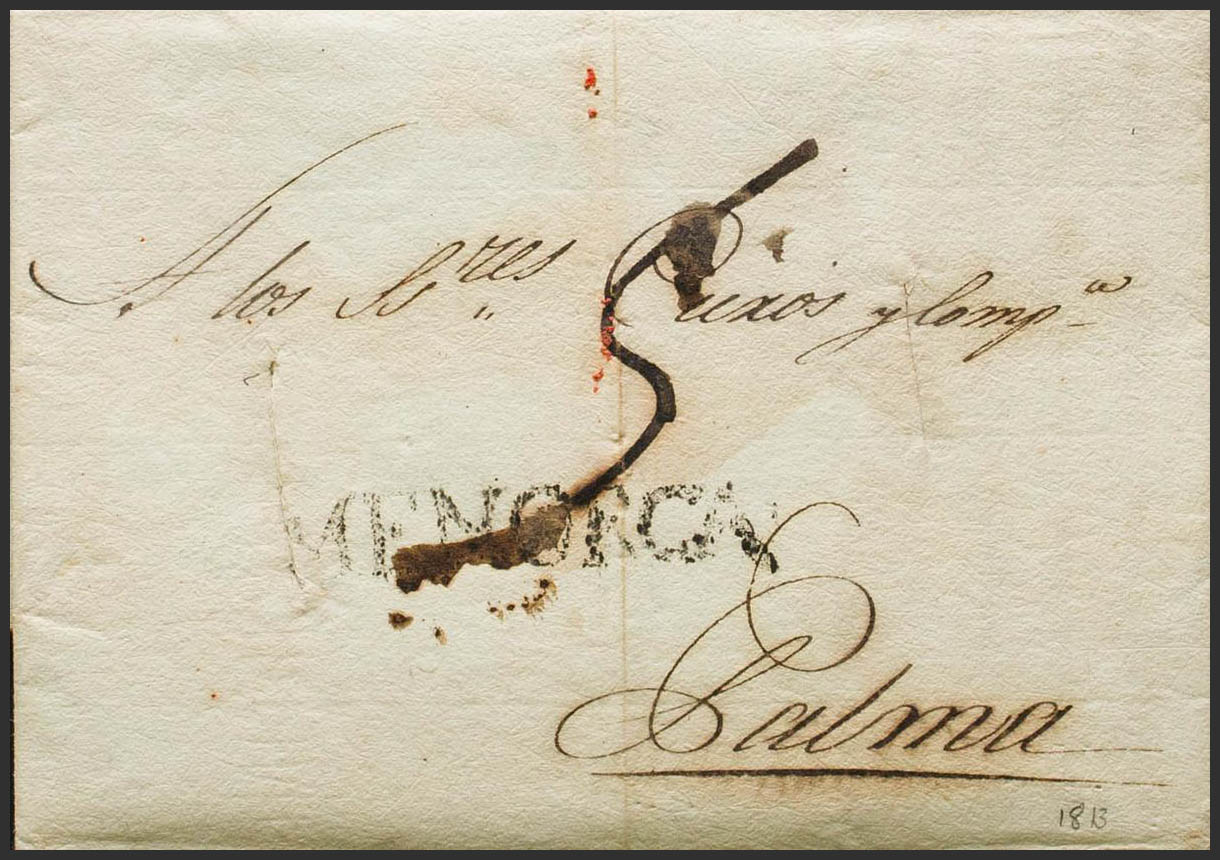 A los S.res y Comp.a
5
MENORCA
Palma
1813